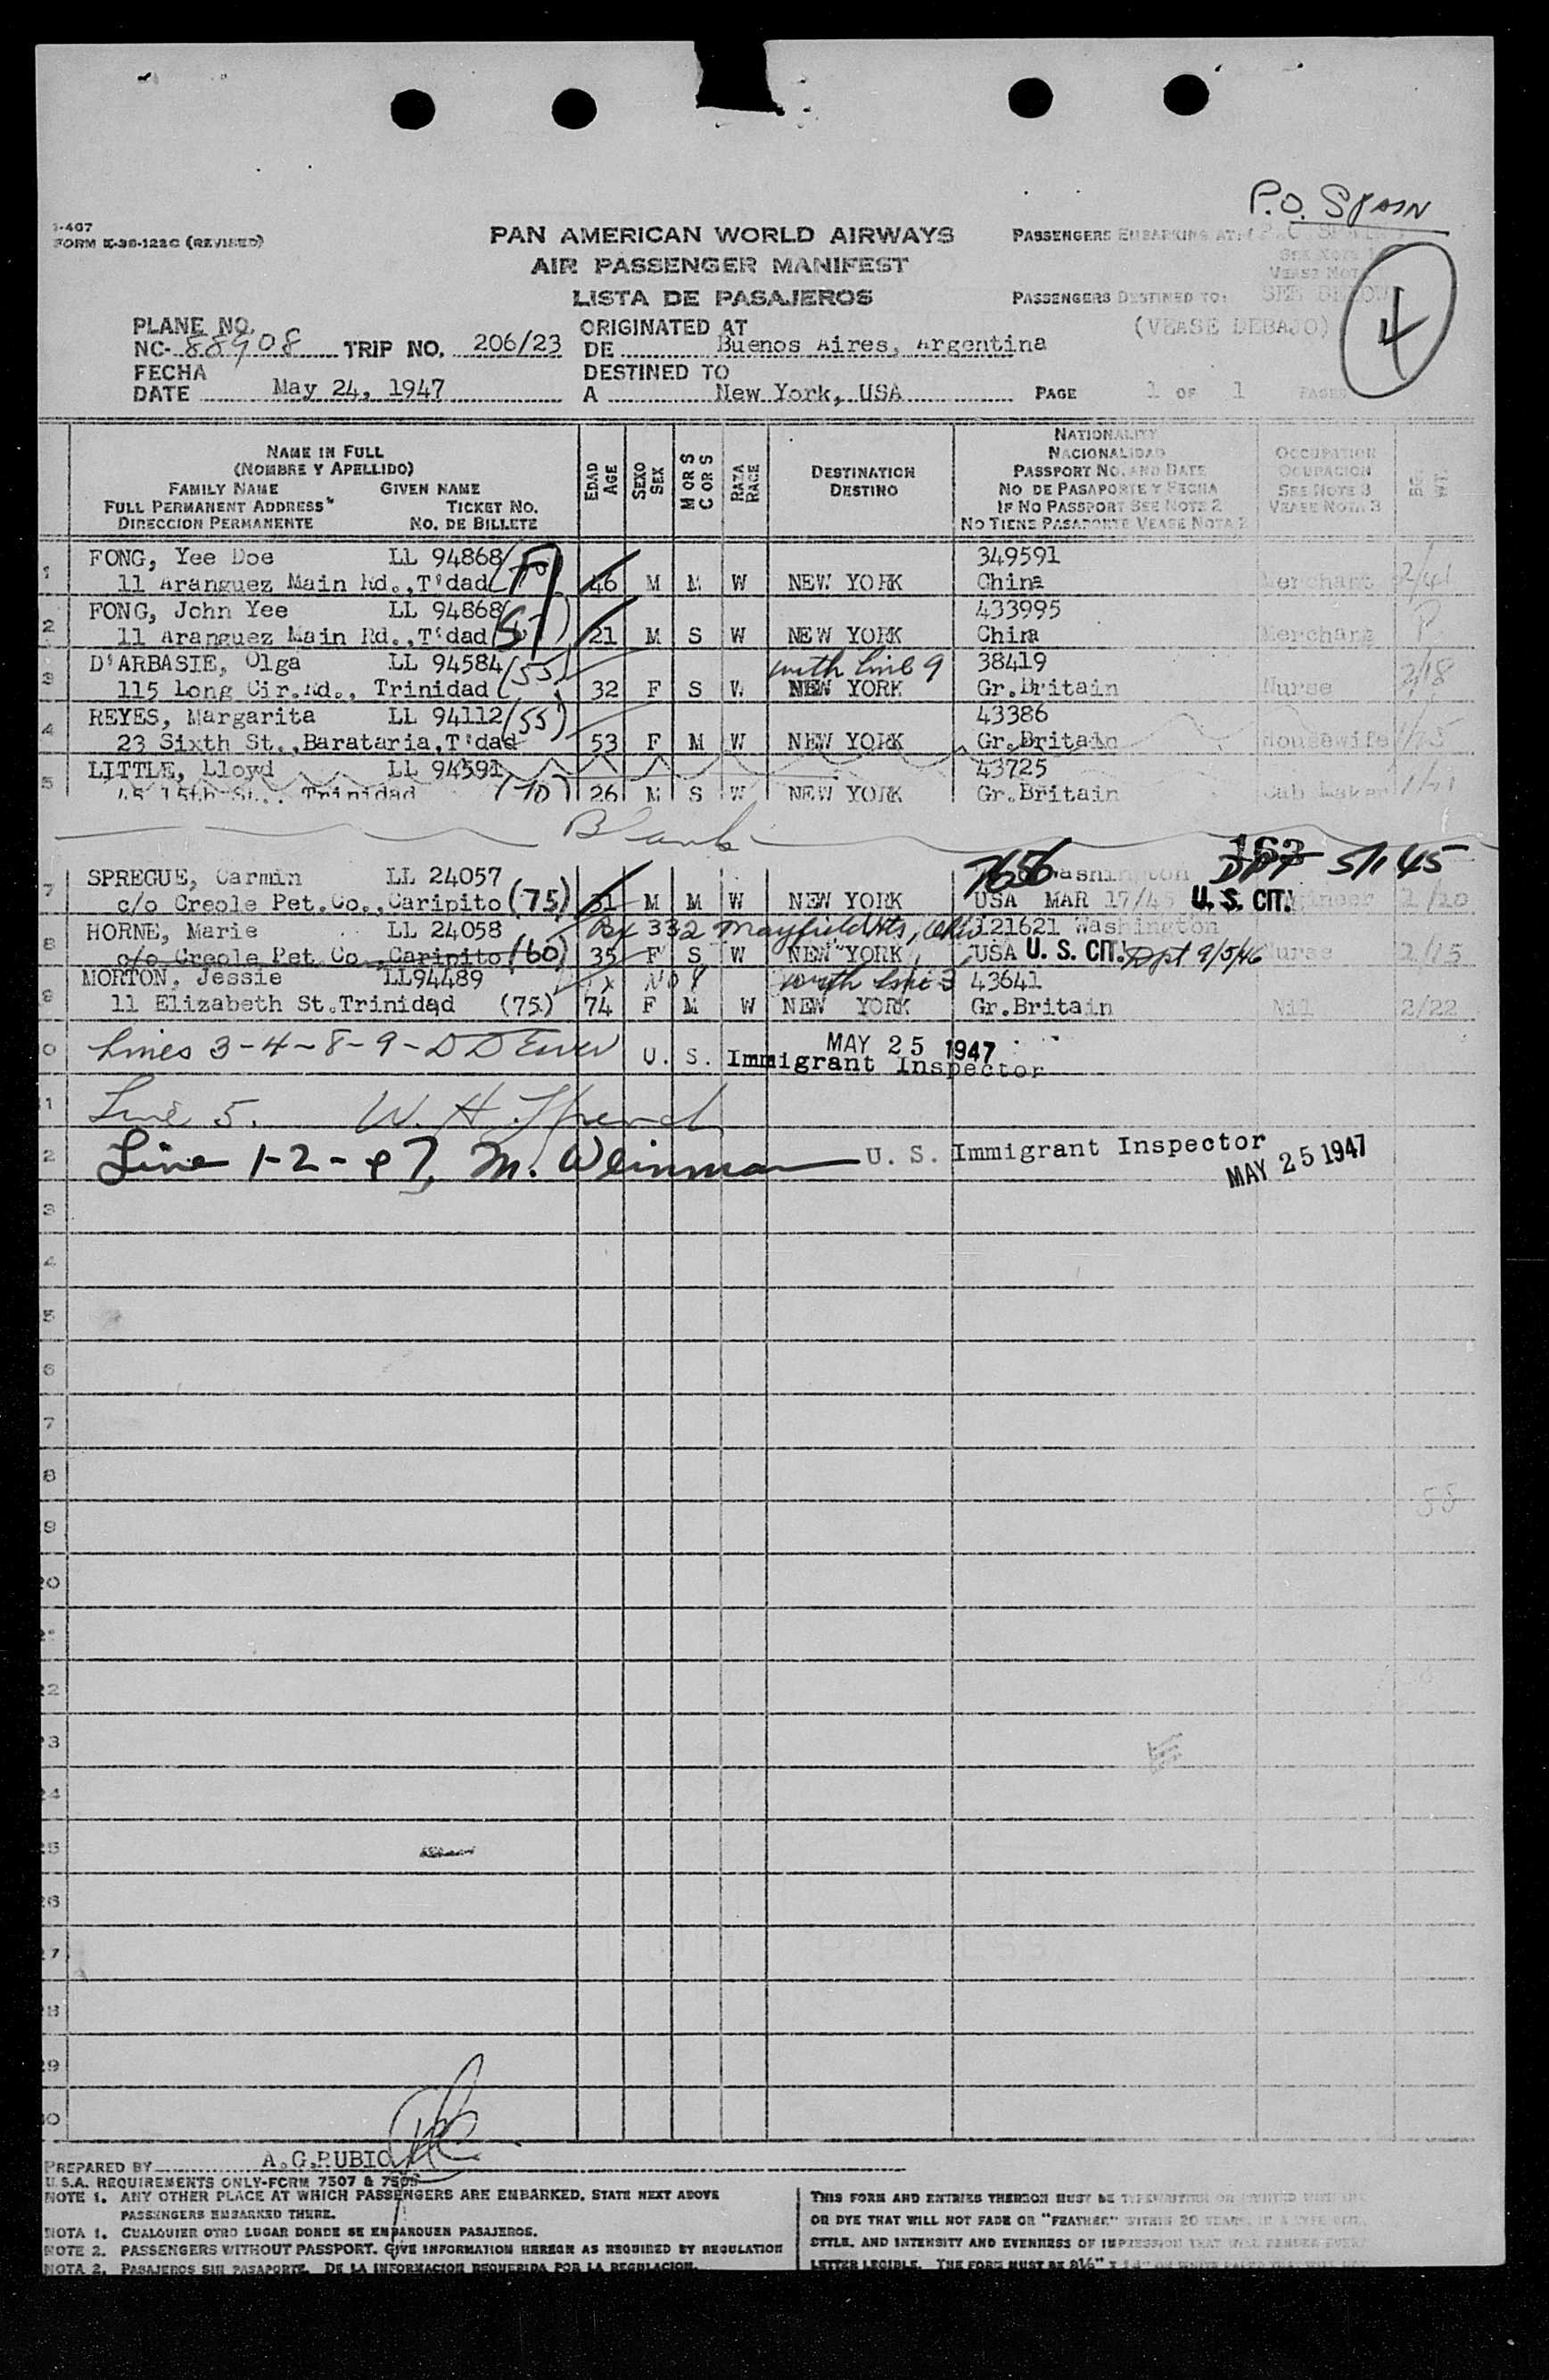 P.O. SPAIN
I-407
FORM K-38-122C (REVISED)
PAN AMERICAN WORLD AIRWAYS
AIR PASSENGER MANIFEST
LISTA DE PASAJEROS
PASSENGERS EMBARKING AT:
PASSENGERS DESTINED TO: SEE BELOW
(VEASE DEBAJO)
4
PLANE NO.
NC- 88908 TRIP NO. 206/23
ORIGINATED AT
DE Buenos Aires, Argentina
FECHA
DATE May 24, 1947
DESTINED TO
A New York, USA
PAGE 1 OF 1 PAGES
NAME IN FULL
(NOMBRE Y APELLIDO)
FAMILY NAME GIVEN NAME
FULL PERMANENT ADDRESS TICKET NO.
DIRECCION PERMANENTE NO. DE BILLETE
EDAD
AGE
SEXO
SEX
M OR S
C OR S
RAZA
RACE
DESTINATION
DESTINO
NATIONALITY
NACIONALIDAD
PASSPORT NO. AND DATE
NO DE PASAPORTE Y FECHA
IF NO PASSPORT SEE NOTE 2
NO TIENE PASAPORTE VEASE NOTA 2
OCCUPATION
OCUPACION
SEE NOTE 3
VEASE NOTA 3
1 FONG, Yee Doe LL 94868 349591
11 Aranguez Main Rd., T'dad 46 M M W NEW YORK China Merchant 2/41
2 FONG, John Yee LL 94868 433995
11 Aranguez Main Rd., T'dad 21 M S W NEW YORK China Merchant
3 D'ARBASIE, Olga LL 94584 (55) with line 9 38419
115 Long Cir.Rd., Trinidad 32 F S W NEW YORK Gr.Britain Nurse 2/18
4 REYES, Margarita LL 94112 (55) 43386
23 Sixth St., Barataria, T'dad 53 F M W NEW YORK Gr.Britain Housewife
5 LITTLE, Lloyd LL 94591 43725
15th St., Trinidad (70) 26 M S W NEW YORK Gr.Britain Cab Maker
Blank
7 SPREGUE, Carmin LL 24057 7656 Washington 5/1/45
c/o Creole Pet.Co., Caripito (75) 31 M M W NEW YORK USA MAR 17/45 U. S. CIT. 1/20
8 HORNE, Marie LL 24058 Bx 332 Mayfield Hts, Ohio 121621 Washington
c/o Creole Pet Co., Caripito (60) 35 F S W NEW YORK USA U. S. CIT. Dpt 9/5/46 Nurse 2/15
9 MORTON, Jessie LL94489 with line 3 43641
11 Elizabeth St.Trinidad (75) 74 F M W NEW YORK Gr.Britain Nil 2/22
Lines 3-4-8-9- U. S. Immigrant Inspector MAY 25 1947
Line 5. W. H.
Line 1-2-&7, M. Weinman U. S. Immigrant Inspector
MAY 25 1947
3
4
5
6
7
8
9
20
22
23
24
25
26
27
28
29
30
PREPARED BY A.G.RUBIO
U.S.A. REQUIREMENTS ONLY-FORM 7507 & 7509
NOTE 1. ANY OTHER PLACE AT WHICH PASSENGERS ARE EMBARKED, STATE NEXT ABOVE
PASSENGERS EMBARKED THERE.
NOTA 1. CUALQUIER OTRO LUGAR DONDE SE EMBARQUEN PASAJEROS.
NOTE 2. PASSENGERS WITHOUT PASSPORT. GIVE INFORMATION HEREON AS REQUIRED BY REGULATION
NOTA 2. PASAJEROS SIN PASAPORTE. DE LA INFORMACION REQUERIDA POR LA REGULACION.
THIS FORM AND ENTRIES THEREON MUST BE TYPEWRITTEN OR PRINTED WITH INK
OR DYE THAT WILL NOT FADE OR "FEATHER" WITHIN 20 YEARS, IN A TYPE
STYLE, AND INTENSITY AND EVENNESS OF IMPRESSION THAT WILL RENDER EVERY
LETTER LEGIBLE. THE FORM MUST BE 8½" X